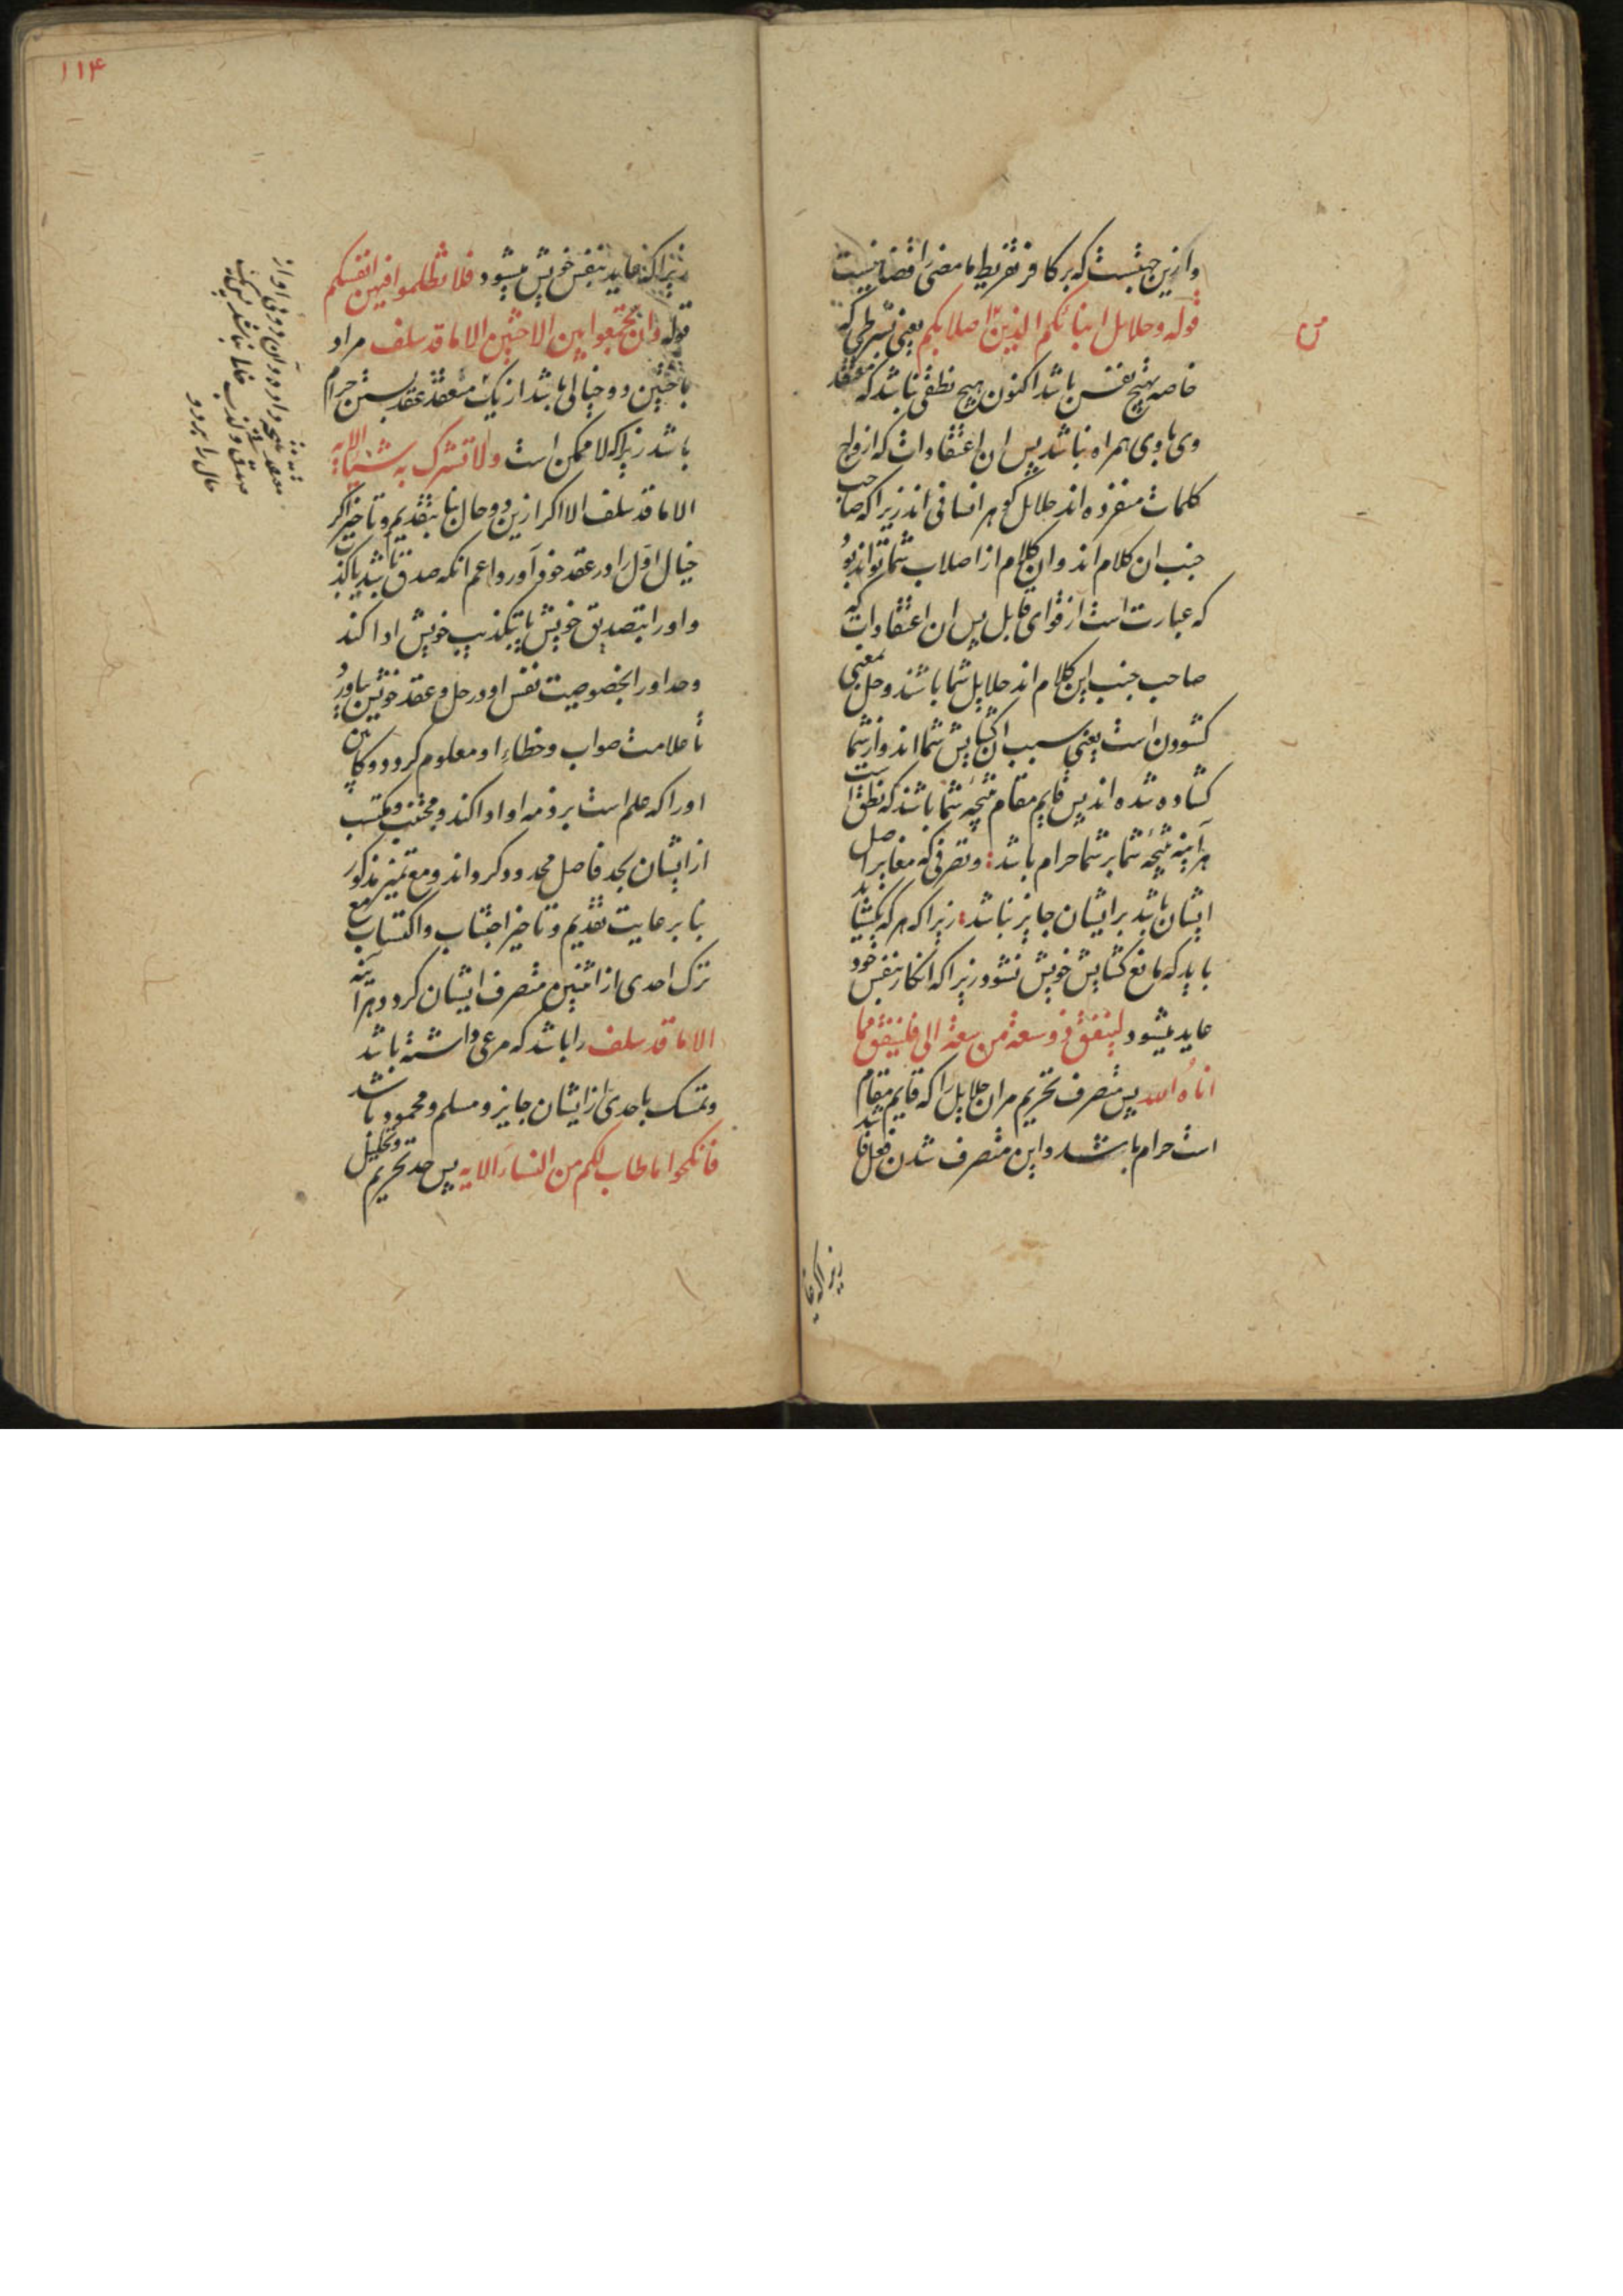 وازین جهتست که بر کافر تفریط ما مضی را قضا نیست
قوله وحلائل ابنائکم الذین اصلابکم یعنی شرطی که
من
خاصه نفس باشد اکنون هیچ نطقی نباشد که معتقد
وی با وی همراه نباشد پس ان اعتقادات که ازواج
کلمات منفرده اند حلایل گوهر انسانی اند زیرا که صاحب
جنب ان کلام اند وان کلام از اصلاب شما تواند بود
که عبارت است از قوای قابل پس ان اعتقادات که
صاحب جنب این کلام اند حلایل شما باشند وحل بمعنی
کشودن است یعنی سبب ان کشایش شما اند واز شما
کشاده شده اند پس قایم مقام نتیجه شما باشند که نطق است
هرآینه نتیجه شما بر شما حرام باشد وتصرفی که مغایر اصل
ایشان باشد بر ایشان جایز نباشد زیرا که هر که بکشاید
باید که مانع کشایش خویش نشود زیرا که انکار بنفس خود
عاید میشود لینفق ذو سعة من سعته الی فلینفق مما
اتاه الله پس متصرف تحریم مران حلایل را که قایم مقام
است حرام باشد واین متصرف شدن فعل قا
زیرا که
۱۱۴
زیرا که عاید بنفس خویش میشود فلا تظلموا فیهن انفسکم
قوله وان تجمعوا بین الاختین الا ما قد سلف مراد
باختین دو خیالی باشد از یک معتقد عقد بستن حرام
باشد زیرا که لا ممکن است ولا تشرک به شیئا الایه
الا ما قد سلف الا اکر ازین دو حال بنا بتقدیم وتاخیر اکر
خیال اول را در عقد خود آورد واعم انکه صدق باشد یا کذب
واورا بتصدیق خویش یا بتکذیب خویش ادا کند
وحد اورا بخصوصیت نفس او در حل وعقد خویش بیاورد
تا علامت صواب وخطاء او معلوم کردد وکابین
اورا که علم است بر ذمه او ادا کند ومجتنب ومکتسب
از ایشان بحد فاصل محدود کرداند ومع تمیز مذکور
بنا بر عایت تقدیم وتاخیر اجتناب واکتساب مع
ترک احدی از اثنین متصرف ایشان کردد هرآینه
الا ما قد سلف را باشد که مرعی داشته باشد
وتمسک باحدی از ایشان جایز ومسلم ومحمود باشد
فانکحوا ما طاب لکم من النساء الایه پس حد تحریم وتحلیل
حال را برود